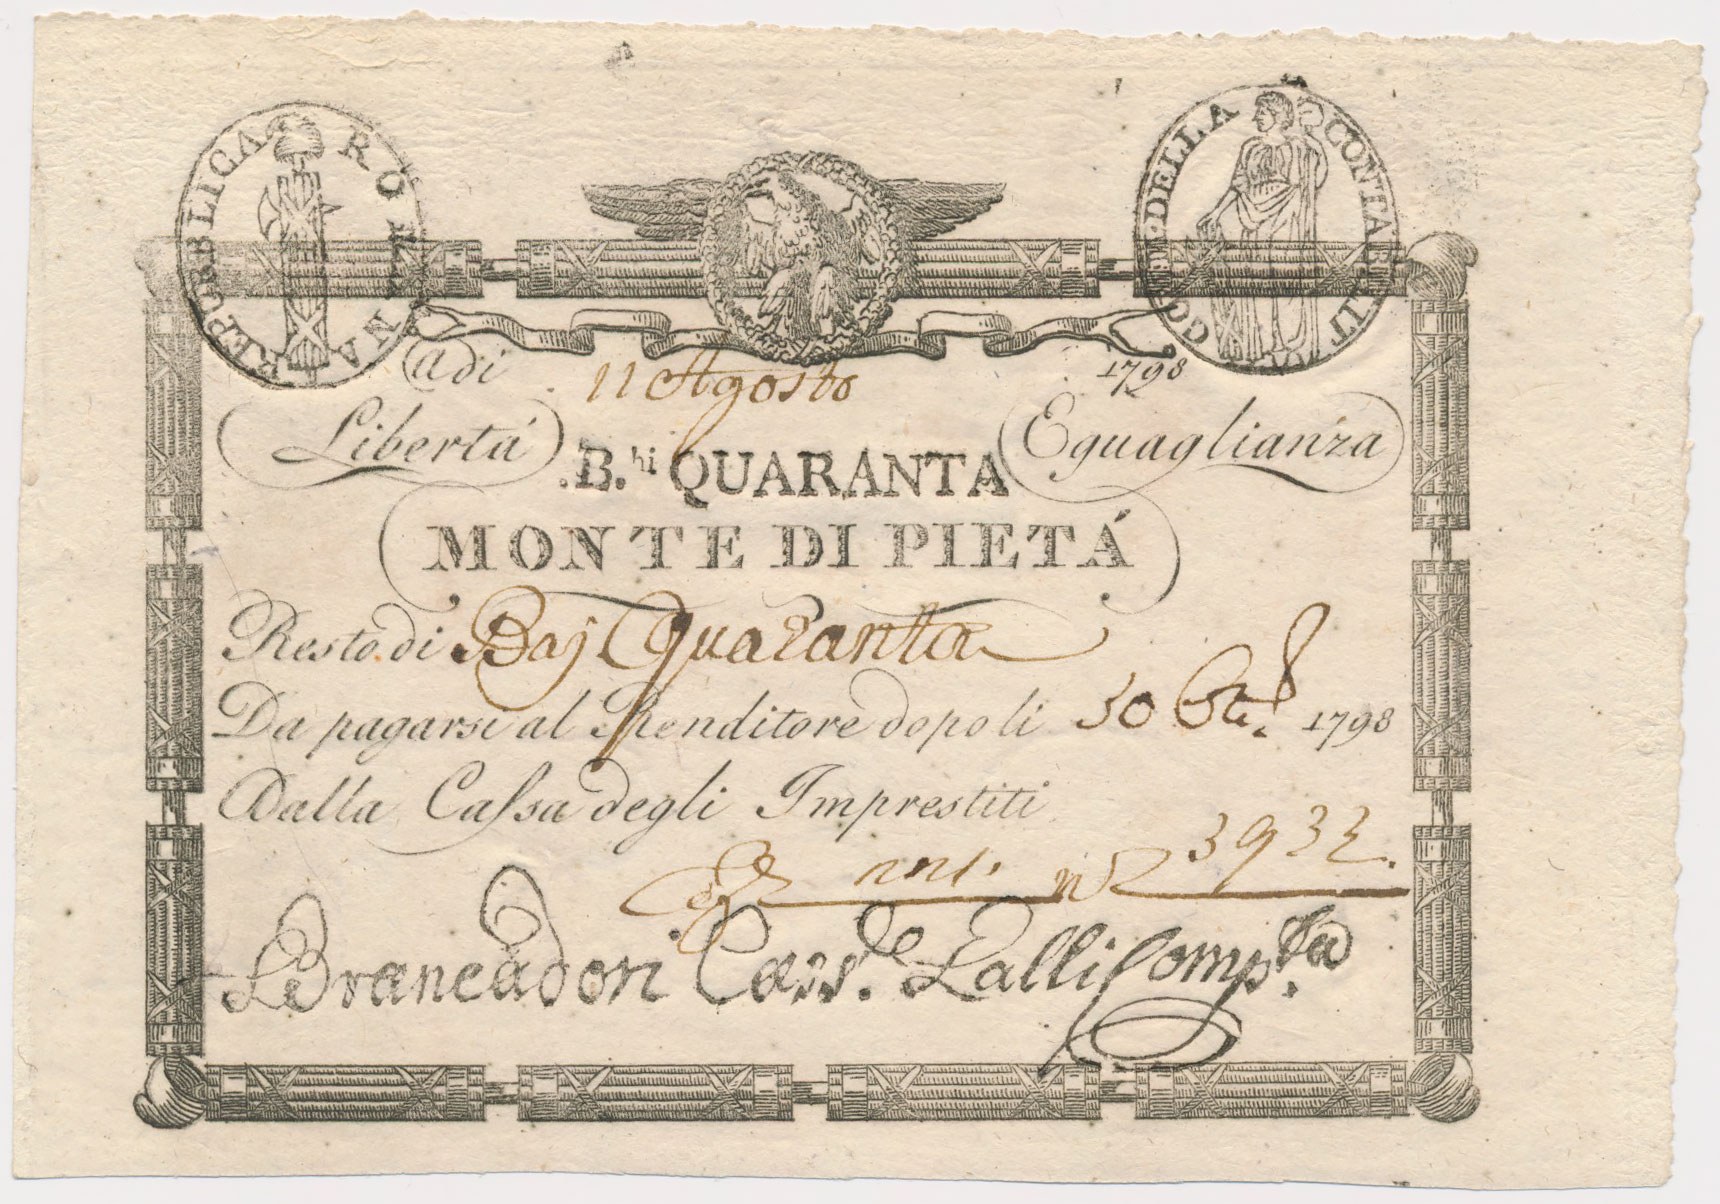 REPUBBLICA ROMANA
COM. DELLA CONTABILITA
Adi 11 Agosto 1798
Libertá Eguaglianza
B.hi QUARANTA
MONTE DI PIETÁ
Resto di Baj Quaranta
Da pagarsi al Renditore dopo li 30 1798
Dalla Cassa degli Imprestiti
3932.
Brancadori Cass.e Lalli Comp.ta